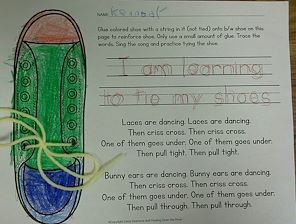 NAME: Kennedy
Glue colored shoe with a string in it (not tied) onto b/w shoe on this
page to reinforce shoe. Only use a small amount of glue. Trace the
words. Sing the song and practice tying the shoe.
I am learning
to tie my shoes
Laces are dancing. Laces are dancing.
Then criss cross. Then criss cross.
One of them goes under. One of them goes under.
Then pull tight. Then pull tight.
Bunny ears are dancing. Bunny ears are dancing.
Then criss cross. Then criss cross.
One of them goes under. One of them goes under.
Then pull through. Then pull through.